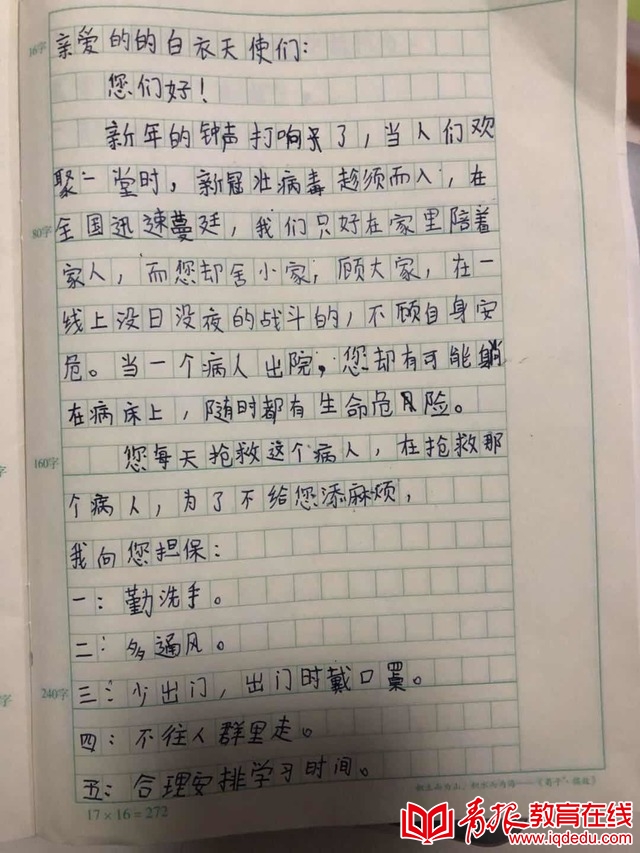 亲爱的的白衣天使们：
您们好！
新年的钟声打响来了，当人们欢
聚一堂时，新冠壮病毒趁须而入，在
全国迅速蔓廷，我们只好在家里陪着
家人，而您却舍小家，顾大家，在一
线上没日没夜的战斗的，不顾自身安
危。当一个病人出院，您却有可能躺
在病床上，随时都有生命危险。
您每天抢救这个病人，在抢救那
个病人，为了不给您添麻烦，
我向您担保：
一：勤洗手。
二：多通风。
三：少出门，出门时戴口罩。
四：不往人群里走。
五：合理安排学习时间。
16字
80字
160字
240字
17×16=272
青报教育在线
www.iqdedu.com